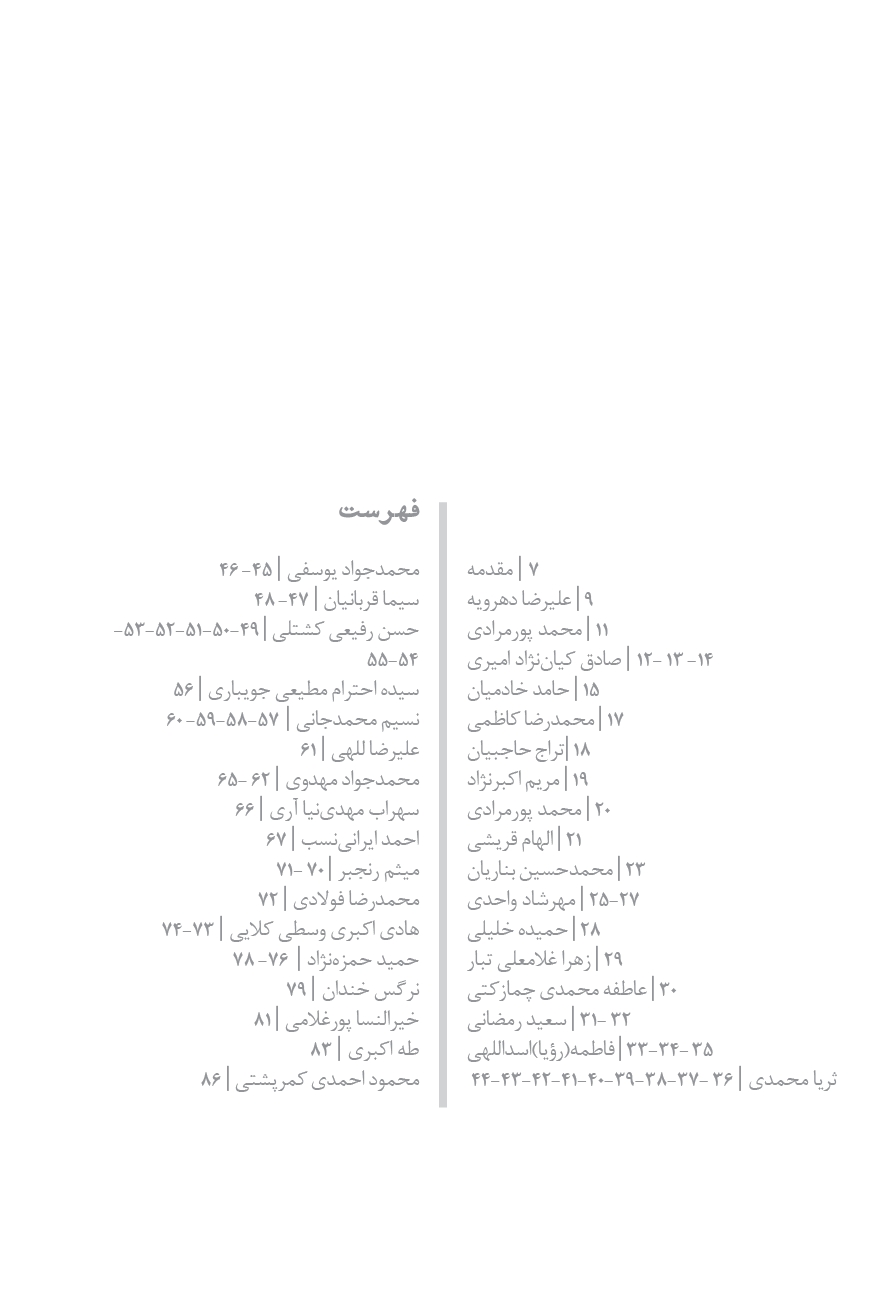 فهرست
۷ | مقدمه
۹ | علیرضا دهرویه
۱۱ | محمد پورمرادی
۱۴- ۱۳ -۱۲ | صادق کیان‌نژاد امیری
۱۵ | حامد خادمیان
۱۷ | محمدرضا کاظمی
۱۸ | تراج حاجبیان
۱۹ | مریم اکبرنژاد
۲۰ | محمد پورمرادی
۲۱ | الهام قریشی
۲۳ | محمدحسین بناریان
۲۵-۲۷ | مهرشاد واحدی
۲۸ | حمیده خلیلی
۲۹ | زهرا غلامعلی تبار
۳۰ | عاطفه محمدی چمازکتی
۳۲ -۳۱ | سعید رمضانی
۳۵ -۳۴-۳۳ | فاطمه(رؤیا)اسداللهی
ثریا محمدی | ۳۶ -۳۷-۳۸-۳۹-۴۰-۴۱-۴۲-۴۳-۴۴
محمدجواد یوسفی | ۴۵- ۴۶
سیما قربانیان | ۴۷- ۴۸
حسن رفیعی کشتلی | ۴۹-۵۰-۵۱-۵۲-۵۳-
۵۴-۵۵
سیده احترام مطیعی جویباری | ۵۶
نسیم محمدجانی | ۵۷-۵۸-۵۹- ۶۰
علیرضا للهی | ۶۱
محمدجواد مهدوی | ۶۲ -۶۵
سهراب مهدی‌نیا آری | ۶۶
احمد ایرانی‌نسب | ۶۷
میثم رنجبر | ۷۰ -۷۱
محمدرضا فولادی | ۷۲
هادی اکبری وسطی کلایی | ۷۳-۷۴
حمید حمزه‌نژاد | ۷۶- ۷۸
نرگس خندان | ۷۹
خیرالنسا پورغلامی | ۸۱
طه اکبری | ۸۳
محمود احمدی کمرپشتی | ۸۶